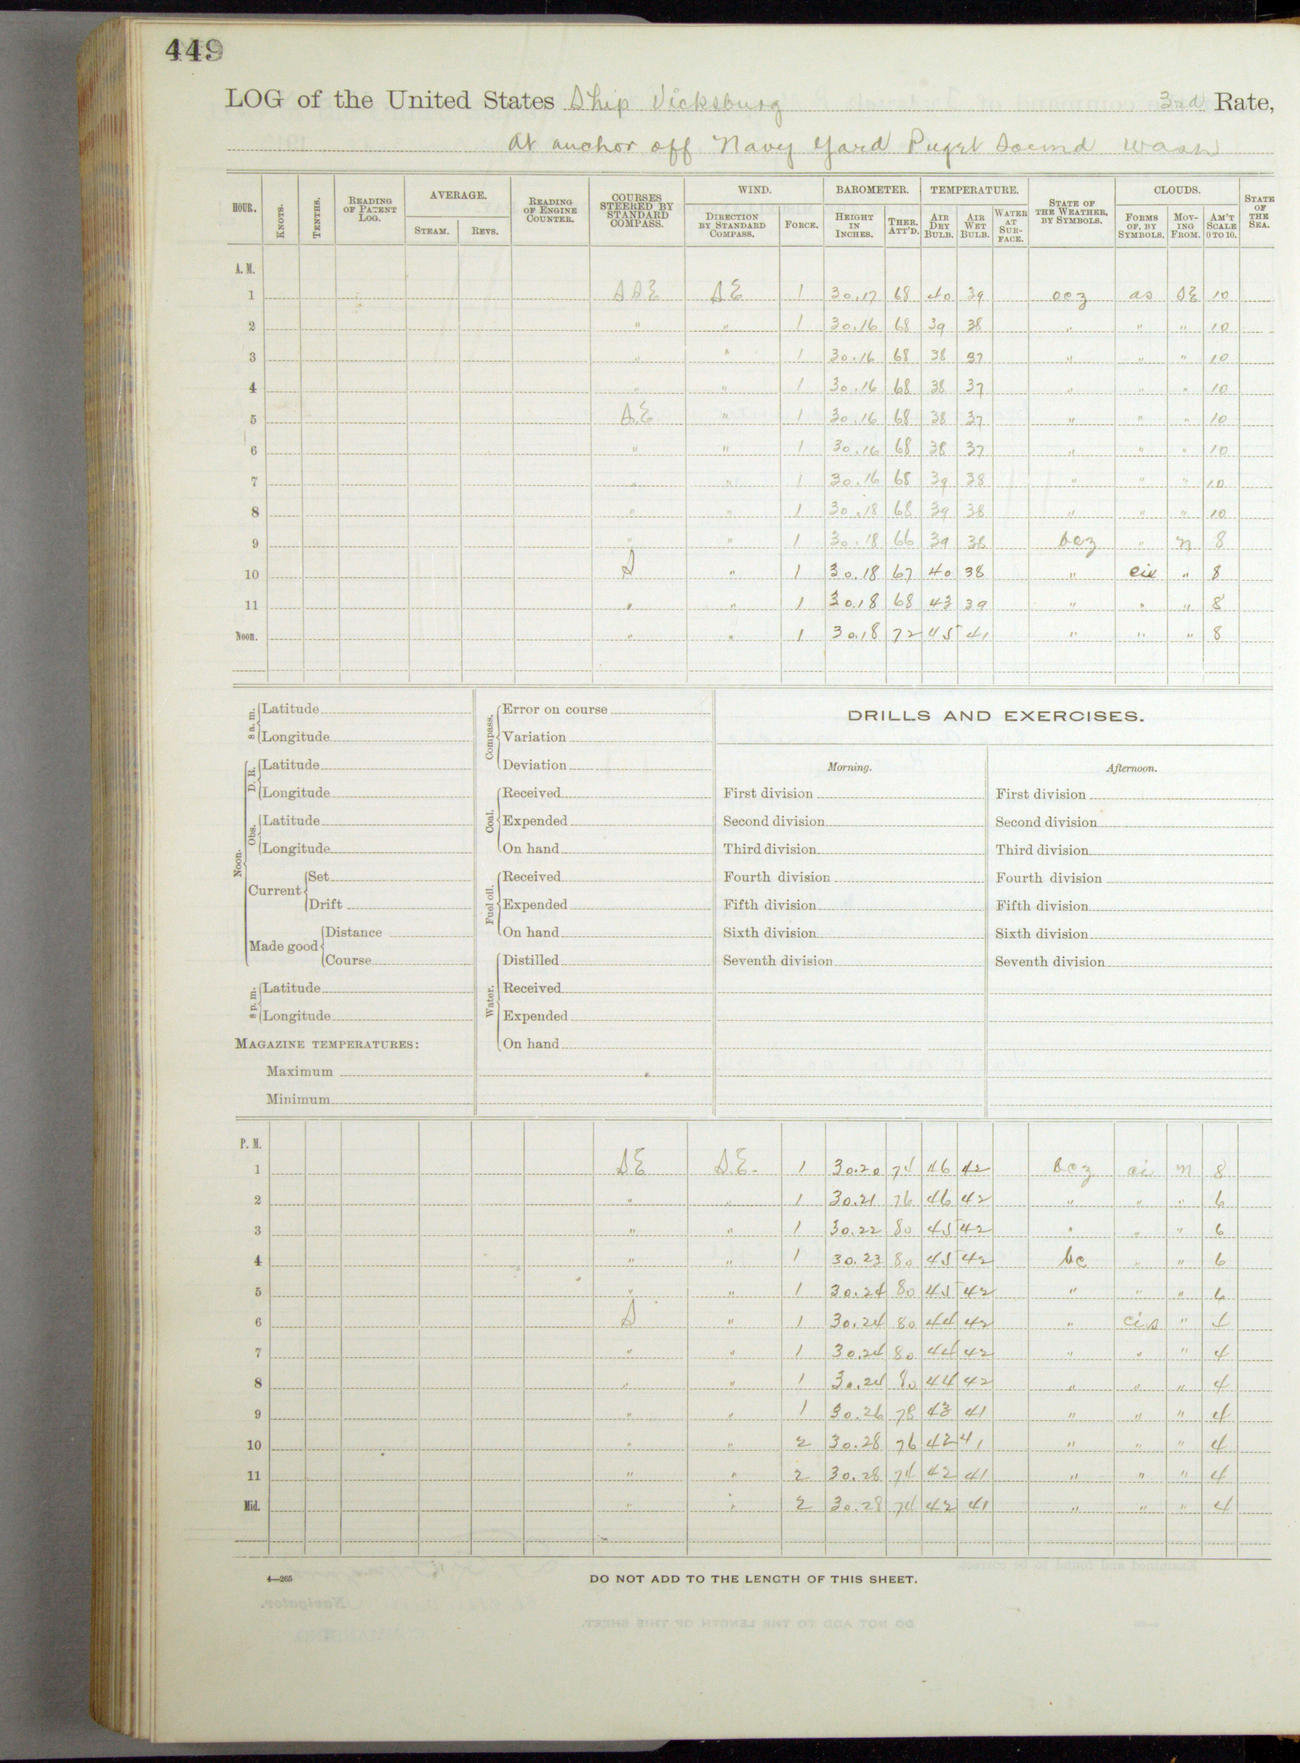 449
LOG of the United States Ship Vicksburg 3rd Rate,
At anchor off Navy Yard Puget Sound Wash
HOUR. KNOTS. TENTHS. READING OF PATENT LOG. AVERAGE. STEAM. REVS. READING OF ENGINE COUNTER. COURSES STEERED BY STANDARD COMPASS. WIND. DIRECTION BY STANDARD COMPASS. FORCE. BAROMETER. HEIGHT IN INCHES. THER. ATT'D. TEMPERATURE. AIR DRY BULB. AIR WET BULB. WATER AT SURFACE. STATE OF THE WEATHER, BY SYMBOLS. CLOUDS. FORMS OF, BY SYMBOLS. MOVING FROM. AM'T SCALE 0 TO 10. STATE OF THE SEA.
A. M.
1 SSE SE 1 30.17 68 40 39 ocz as SE 10
2 " " 1 30.16 68 39 38 " " " 10
3 " " 1 30.16 68 38 37 " " " 10
4 " " 1 30.16 68 38 37 " " " 10
5 SE " 1 30.16 68 38 37 " " " 10
6 " " 1 30.16 68 38 37 " " " 10
7 " " 1 30.16 68 39 38 " " " 10
8 " " 1 30.18 68 39 38 " " " 10
9 " " 1 30.18 66 39 38 bcz " N 8
10 S " 1 30.18 67 40 38 " " 8
11 " " 1 30.18 68 43 39 " " " 8
Noon. " " 1 30.18 72 45 41 " " " 8
8 a. m. Latitude
Longitude
Noon. D. R. Latitude
Longitude
Obs. Latitude
Longitude
Current Set
Drift
Made good Distance
Course
8 p. m. Latitude
Longitude
MAGAZINE TEMPERATURES:
Maximum
Minimum
Compass. Error on course
Variation
Deviation
Coal. Received
Expended
On hand
Fuel oil. Received
Expended
On hand
Water. Distilled
Received
Expended
On hand
DRILLS AND EXERCISES.
Morning. Afternoon.
First division First division
Second division Second division
Third division Third division
Fourth division Fourth division
Fifth division Fifth division
Sixth division Sixth division
Seventh division Seventh division
P. M.
1 SE SE 1 30.20 74 46 42 bcz ci N 8
2 " " 1 30.21 76 46 42 " " " 6
3 " " 1 30.22 80 45 42 " " " 6
4 " " 1 30.23 80 45 42 bc " " 6
5 " " 1 30.24 80 45 42 " " " 6
6 S " 1 30.24 80 44 42 " cis " 4
7 " " 1 30.24 80 44 42 " " " 4
8 " " 1 30.24 80 44 42 " " " 4
9 " " 1 30.26 78 43 41 " " " 4
10 " " 2 30.28 76 42 41 " " " 4
11 " " 2 30.28 74 42 41 " " " 4
Mid. " " 2 30.28 74 42 41 " " " 4
4—265
DO NOT ADD TO THE LENGTH OF THIS SHEET.